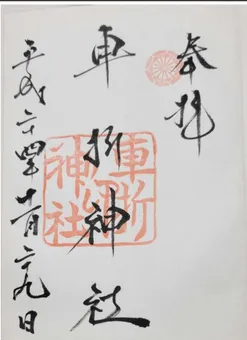 奉拝
車折神社
平成二十四年十一月二九日
車折
神社